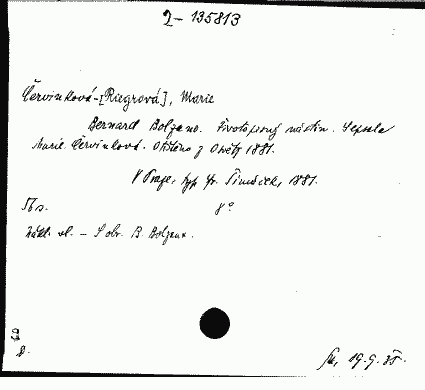 2-135813
Červinková-[Riegrová], Marie
Bernard Bolzano. Životopisný nástin. Sepsala
Marie Červinková. Otištěno z Osvěty 1881.
V Praze, typ. Fr. Šimáček, 1881.
56 s. 8°
Nákl. vl. - S obr. B. Bolzana.
D.
19.9.35